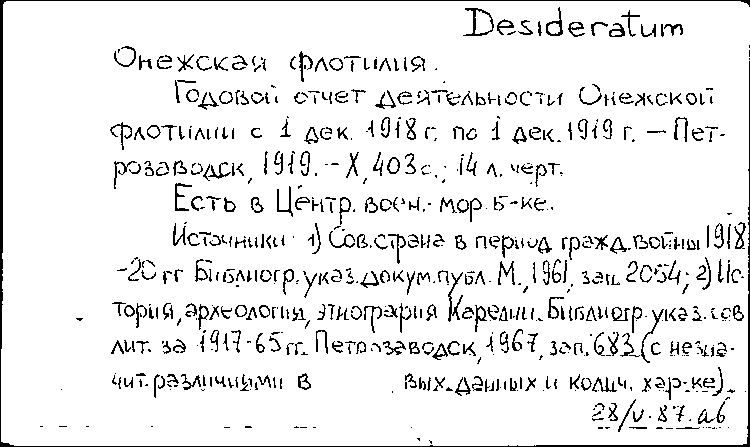 Desideratum
Онежская флотилия.
Годовой отчет деятельности Онежской
флотилии с 1 дек. 1918 г. по 1 дек. 1919 г. – Пет-
розаводск, 1919. – X, 403 с.; 14 л. черт.
Есть в Центр. воен.-мор. б-ке.
Источники: 1) Сов. страна в период гражд. войны 1918
-20 гг. Библиогр. указ. докум. публ. М., 1961, зап. 2054; 2) Ис-
тория, археология, этнография Карелии. Библиогр. указ. сов
лит. за 1917-65 гг. Петрозаводск, 1967, зап. 683 (с незна-
чит. различиями в вых. данных и колич. хар-ке).
28/V-87. аб